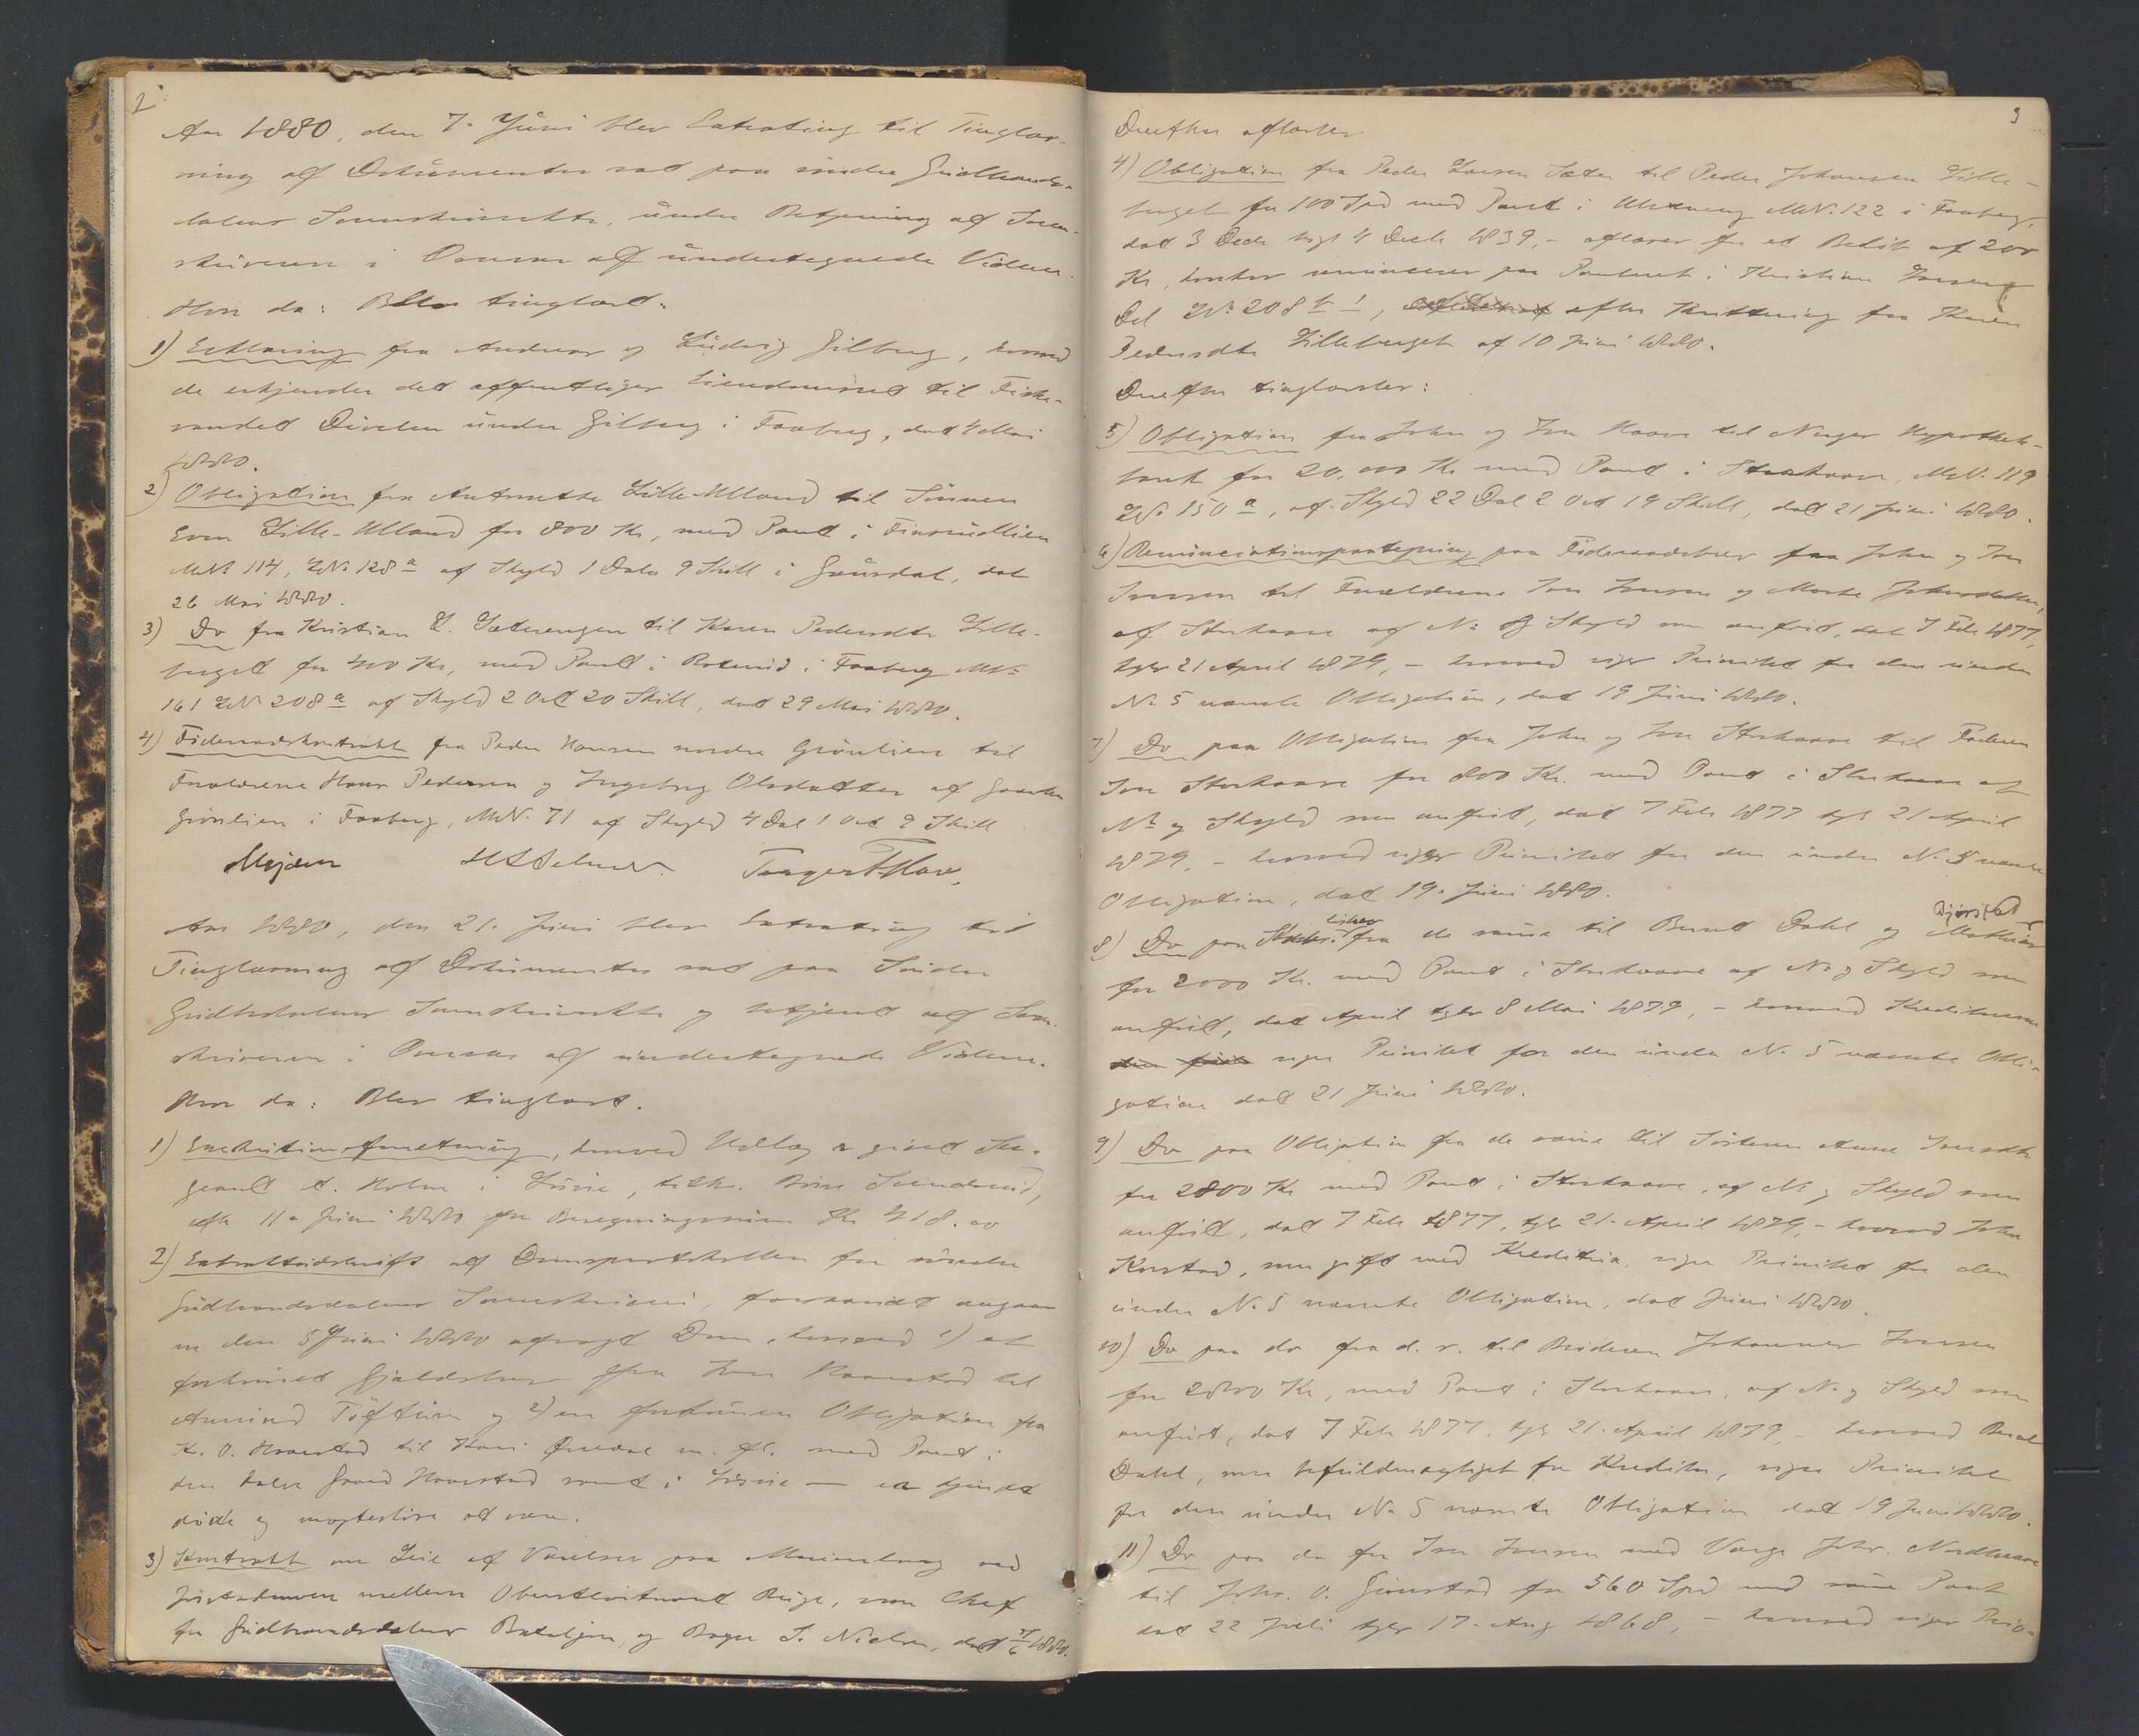 2
Aar 1880, den 7. Juni blev Extrating til Tinglæs-
ning af Dokumenter sat paa søndre Gudbrands-
dalens Sorenskriverkt., under Betjening af Soren-
skriveren i Overvær af undertegnede Vidner.
Hvor da: Blev tinglæst:
1) Erklæring fra Andreas og Ludvig Gilberg, hvorved
de erkjender det offentliges Eiendomsret til Fiske-
vandet Djuvlen under Gilberg i Faaberg, dat 4 Mai
1880.
2) Obligation fra Antonette Lille-Ulland til Sønnen
Even Lille-Ulland for 800 Kr, med Pant i
MNo 114, LNo 128 a af Skyld 1 Daler 9 Skill i Gausdal, dat
26 Mai 1880.
3) Do fra Kristian L. Sæterengen til Karen Pedersdtr Lille-
haget for 400 Kr, med Pant i Roterud i Faaberg MNo
161 LNo 208 a af Skyld 2 Ort 20 Skill, dat 29 Mai 1880.
4) Føderaadskontrakt fra Peder Hansen nordre Grønlien til
Forældrene Hans Pedersen og Ingeborg Olsdatter af Gaarden
Grønlien i Faaberg, MNo. 71 af Skyld 4 Dal 1 Ort 9 Skill
Mejdell
Aar 1880, den 21. Juni blev Extrating til
Tinglæsning af Dokumenter sat paa Søndre
Gudbrdalens Sorenskriverkt. og betjent af Soren-
skriveren i Overvær af undertegnede Vidner.
Hvor da: Blev tinglæst.
1) Exekutionsforretning, hvorved Udlæg er gjort
hos A. Holm i, tilh. Brede Svendsrud,
afh 11. Juni 1880 for Beregningssum Kr 418.00
2) Extraktudskrift af Domsprotokollen for søndre
Gudbrandsdalens Sorenskriveri, forsaavidt angaar
en den 5 Juni 1880 afsagt Dom, hvorved 1) et
forkommet Gjældsbrev fra Iver Haarstad til
Amund Toftum og 2) en forkommen Obligation fra
K. O. Haarstad til Kari m. fl. med Pant i
den halve Gaard Haarstad søndre i — er kjendt
døde og magtesløse at være.
3) Kontrakt om Leie af Værelser paa Marienborg ved
Jørstadmoen mellem Oberstløitnant Ruge, som Chef
for Gudbrandsdalens Bataljon, og Bager S. Nielsen, dat 7/6 1880.
3
Derefter aflæstes
4) Obligation fra Peder Larsen Sæter til Peder Johansen Lille-
haget for 100 Spd med Pant i MNo. 122 i Faaberg,
dat 3 Decb tgl 4 Decb 1839, – aflæses for et Beløb af 200
Kr, hvorhos renunceres paa Panteret i Kristian
Del LNo. 208 b 1, efter Kvittering fra Karen
Pedersdtr Lillehaget af 10 Juni 1880.
Derefter tinglæstes:
5) Obligation fra John og Iver Haave til Norges Hypothek-
bank for 20,000 Kr med Pant i Storhaave, MNo. 119
LNo 150 a, af Skyld 22 Dal 2 Ort 19 Skill, dat 21 Juni 1880.
6) Renunciationspaategning paa Føderaadsbrev fra John og Iver
Iversen til Forældrene Iver Iversen og Marte Johnsdatter,
af Storhaave af No og Skyld som anført, dat 7 Feb 1877,
tgls 21 April 1879, – hvorved viges Prioritet for den under
No 5 nævnte Obligation, dat 19 Juni 1880.
7) Do paa Obligation fra John og Iver Storhaave til Faderen
Iver Storhaave for 800 Kr. med Pant i Storhaave af
No og Skyld som anført, dat 7 Feb 1877 tgl 21 April
1879, – hvorved viges Prioritet for den under No. 5 nævnte
Obligation, dat 19. Juni 1880.
8) Do paa fra de samme til Bernt Dahl og Mathias
for 2000 Kr. med Pant i Storhaave af No og Skyld som
anført, dat April tgls 8 Mai 1879, – hvorved Kreditorerne
viger Prioritet for den under No. 5 nævnte Obli-
gation dat 21 Juni 1880.
9) Do paa Obligation fra de samme til Søsteren Anne Iversdtr
for 2800 Kr med Pant i Storhaave, af No og Skyld som
anført, dat 7 Feb 1877, tgls 21. April 1879, – hvorved John
Korstad, som gift med Kreditrix, viger Prioritet for den
under No 5 nævnte Obligation, dat Juni 1880.
10) Do paa do fra d. s. til Broderen Johannes Iversen
for 2800 Kr, med Pant i Storhaave, af No og Skyld som
anført, dat 7 Feb 1877, tgls 21. April 1879, – hvorved Bernt
Dahl, som befuldmægtiget for Kreditor, viger Prioritet
for den under No 5 nævnte Obligation dat 19 Juni 1880.
11) Do paa do fra Iver Iversen med Værge Johs. Nordhaave
til Johs. O. for 560 Spd med samme Pant
dat 22 Juli tgls 17. Aug 1868, – hvorved viges Prio-